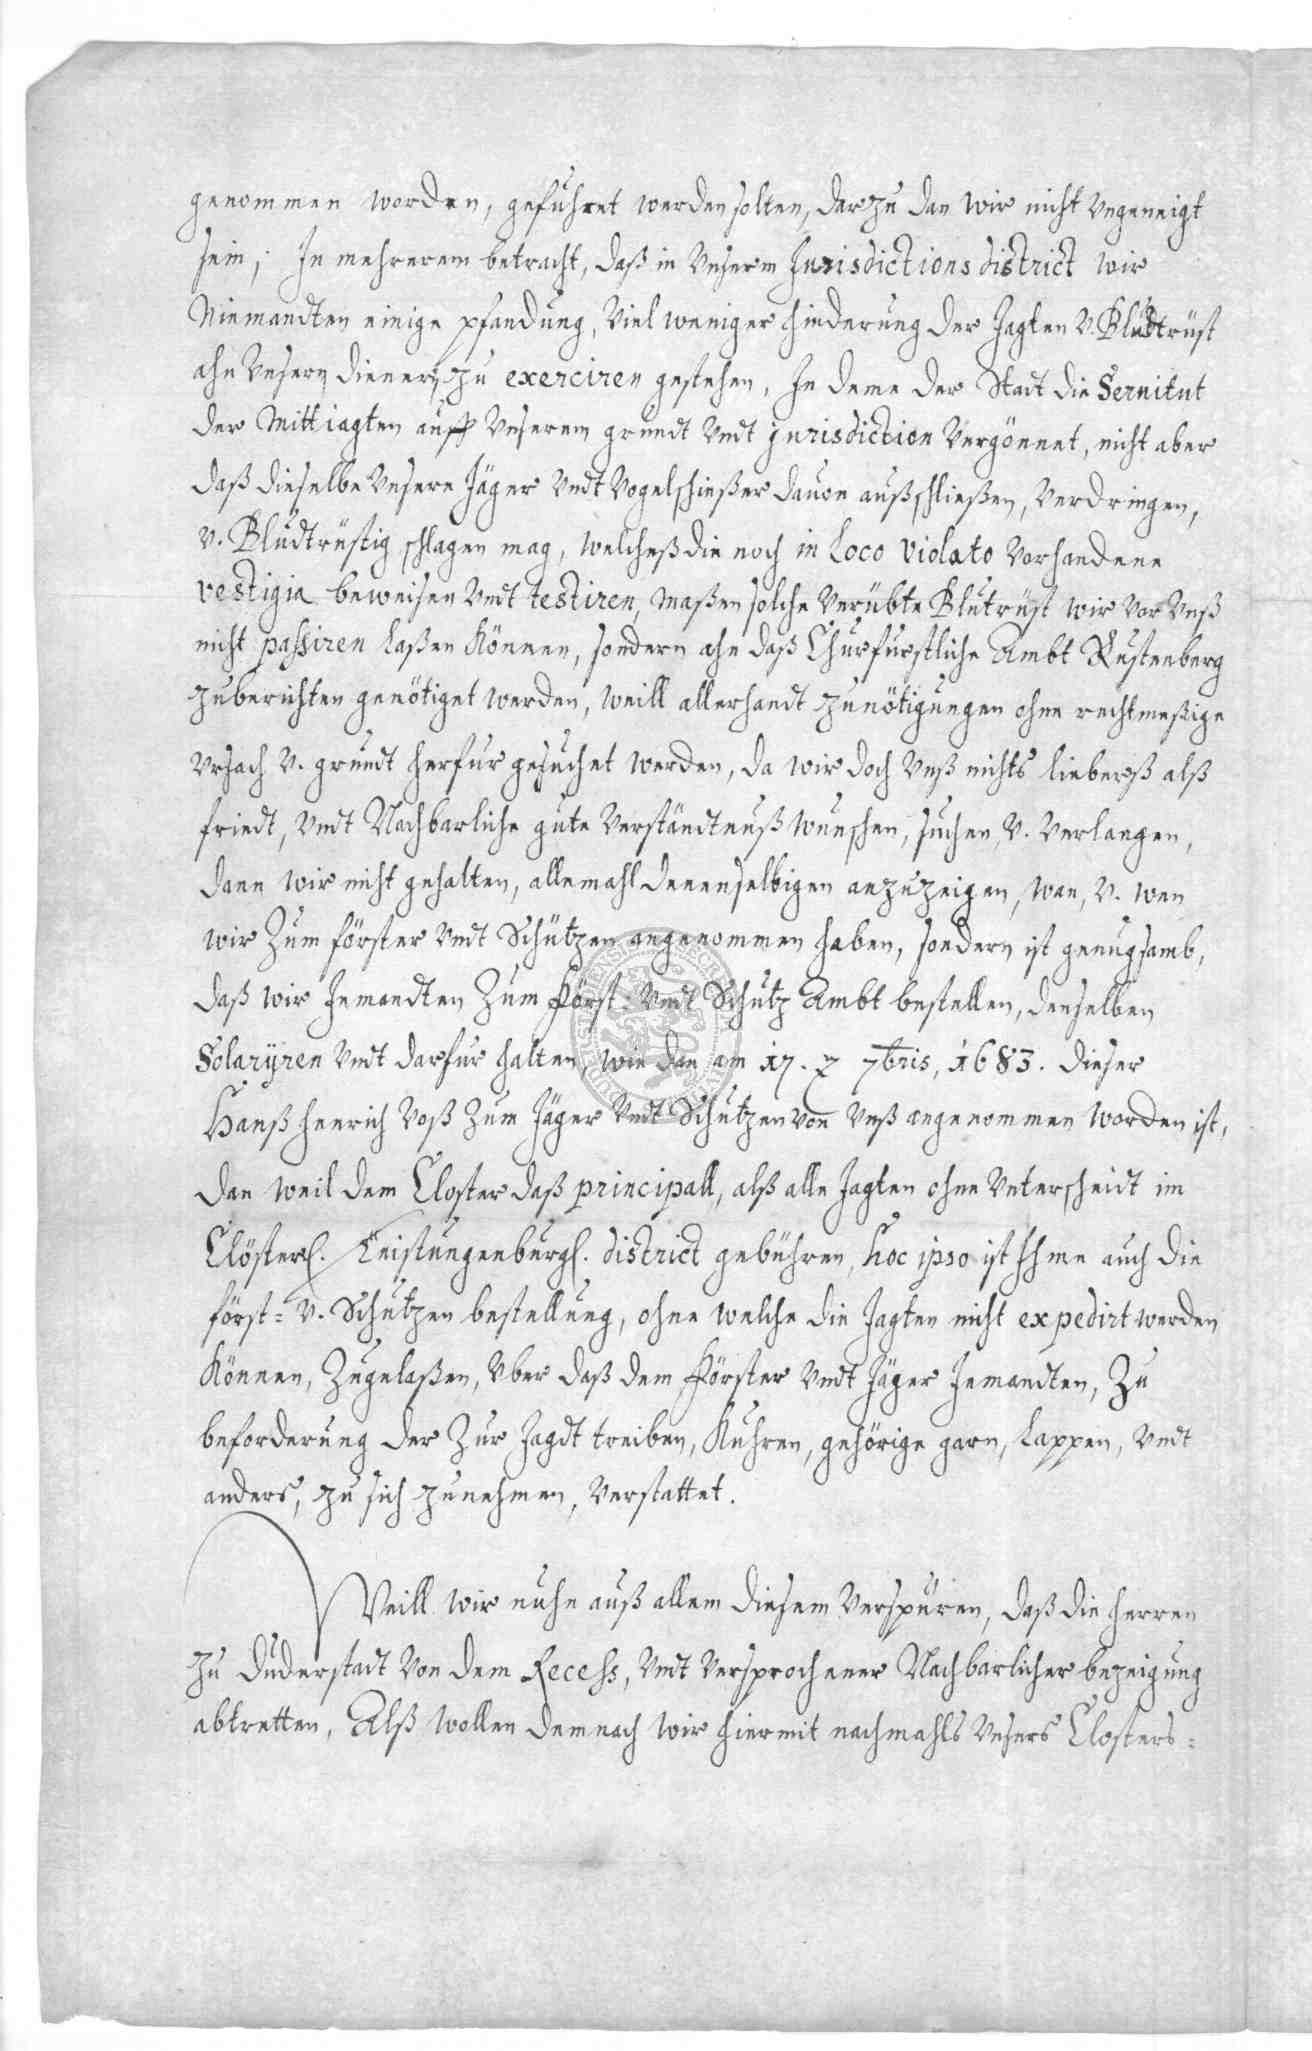 genommen worden, gefuhret werden solten, darzu dan wir nicht vngeneigt
sein, In mehrerem betracht, daß in Vnserm Jurisdictions district wir
Niemandten einige pfandung, viel weniger hinderung der Jagten v. Bludtrüst
ahn Vnsern dienern zu exerciren gestehen, In deme der Stadt die Servitut
der Mittjagten auff Vnserem grundt vndt jurisdiction vergönnet, nicht aber
daß dieselbe Vnsere Jäger vndt Vogelschießer dauon außschließen, verdringen,
v. Bludtrüstig schlagen mag, welcheß die noch in Loco violato vorhandene
vestigia beweisen vndt testiren, maßen solche verübte Blutrüst wir vor Vnß
nicht passiren laßen können, sondern ahn daß Churfurstliche Ambt Rustenberg
zuberichten genötiget werden, weill allerhandt zunötigungen ohne rechtmeßige
vrsach v. grundt herfur gesuchet werden, da wir doch Vnß nichts lieberß alß
friedt, vndt Nachbarliche gute verständtnuß wunschen, suchen, v. verlangen,
dann wir nicht gehalten, allemahl denenselbigen anzuzeigen, wan, v. wen
wir Zum förster vndt Schützen angenommen haben, sondern ist genugsamb,
daß wir Jemandten Zum Först- vndt Schutz Ambt bestellen, denselben
Solaryren vndt darfur halten, wie dan am 17. 7bris, 1683. dieser
Hanß Henrich Voß Zum Jäger vndt Schutzen von Vnß angenommen worden ist,
dan weil dem Closter daß principall, alß alle Jagten ohne Vnterscheidt im
Clösterl. Teistungenburgl. district gebühren, hoc ipso ist Ihme auch die
först- v. Schutzen bestellung, ohne welche die Jagten nicht expedirt werden
können, Zugelaßen, vber daß dem Förster vndt Jäger Jemandten, Zu
beforderung der Zur Jagdt treiben, fuhren, gehörige garn, lappen, vndt
anders, zu sich zunehmen, verstattet.
Weill wir nuhn auß allem diesem verspüren, daß die herren
zu Duderstadt von dem Recess, vndt versprochener Nachbarlicher bezeigung
abtretten, Alß wollen demnach wir hiermit nachmahls Vnsers Closters-